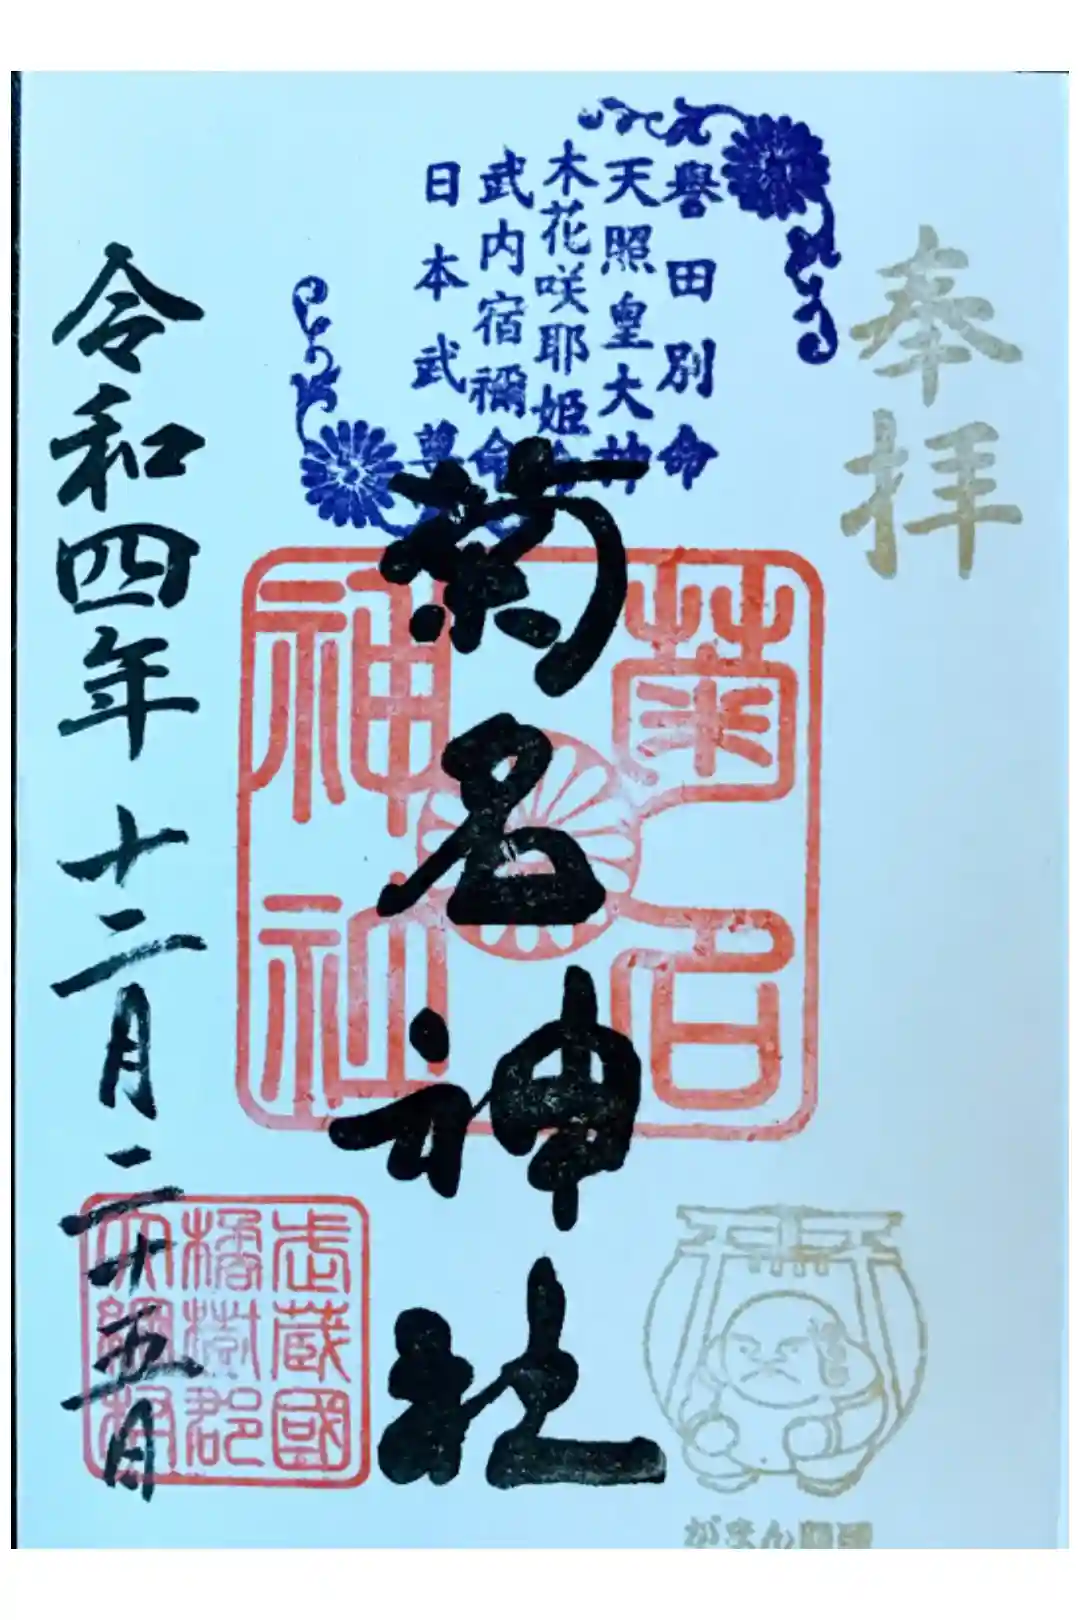 奉拝
譽田別命
天照皇大神
木花咲耶姫命
武内宿禰命
日本武尊
菊名神社
菊名
神社
令和四年十二月二十五日
武蔵國
橘樹郡
大綱村
がまん